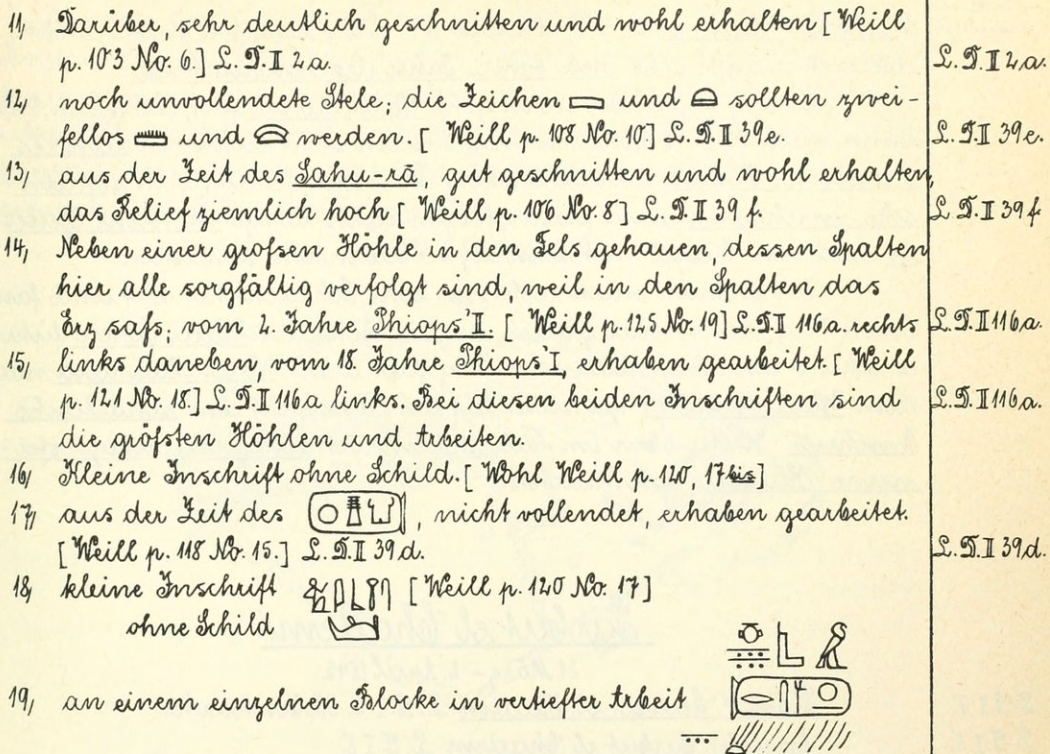 11, Darüber, sehr deutlich geschnitten und wohl erhalten [Weill
p. 103 No. 6.] L. D. II 2a. L. D. II 2a.
12, noch unvollendete Stele; die Zeichen 𓈙 und 𓏏 sollten zwei-
fellos 𓏠 und 𓈍 werden. [Weill p. 108 No. 10] L. D. II 39e. L. D. II 39e.
13, aus der Zeit des Sahu-rā, gut geschnitten und wohl erhalten,
das Relief ziemlich hoch [Weill p. 106 No. 8] L. D. II 39 f. L. D. II 39 f
14, Neben einer großen Höhle in den Fels gehauen, dessen Spalten
hier alle sorgfältig verfolgt sind, weil in den Spalten das
Erz saß. vom 2. Jahre Phiops' II. [Weill p. 125 No. 19] L. D. II 116.a. rechts L. D. II 116a.
15, links daneben, vom 18. Jahre Phiops' I, erhaben gearbeitet. [Weill
p. 121 No. 18.] L. D. II 116a links. Bei diesen beiden Inschriften sind L. D. II 116a.
die größten Höhlen und Arbeiten.
16, Kleine Inschrift ohne Schild. [Wohl Weill p. 120, 17 bis]
17, aus der Zeit des 𓇳𓊽𓂓, nicht vollendet, erhaben gearbeitet.
[Weill p. 118 No. 15.] L. D. II 39.d. L. D. II 39d.
18, kleine Inschrift [Weill p. 120 No. 17]
ohne Schild
19, an einem einzelnen Blocke in vertiefter Arbeit